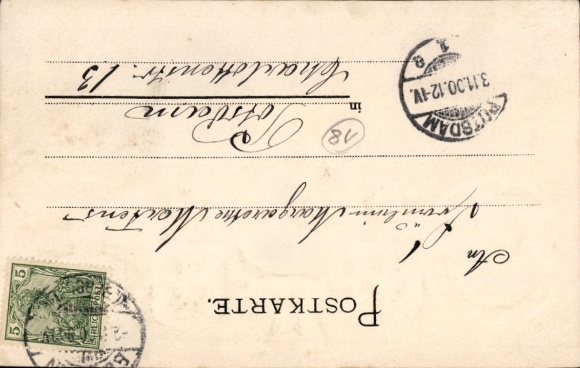 POSTKARTE.
An
Fräulein Margarethe Mertens
in Potsdam
Charlottenstr. 13
81
POTSDAM
3.11.00.12-1V.
1
e
5
5
REICHSPOST